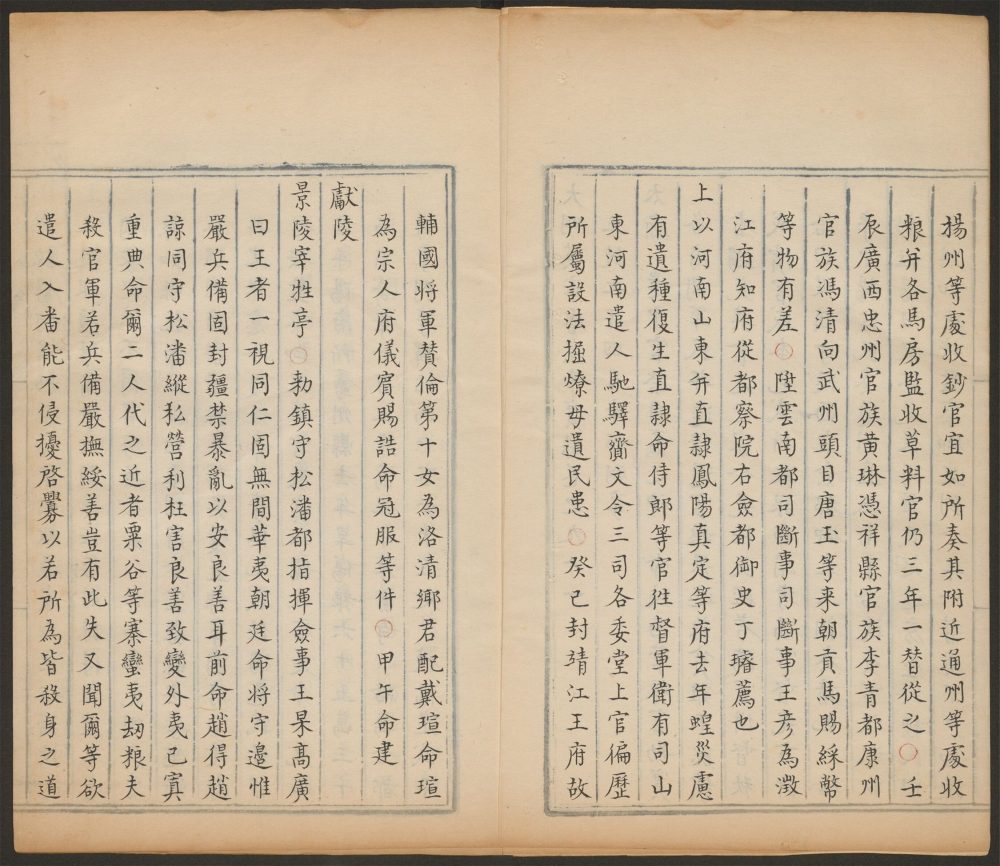 揚州等處收鈔官宜如所奏其附近通州等處收
粮并各馬房監收草料官仍三年一替從之○壬
辰廣西忠州官族黃琳憑祥縣官族李青都康州
官族馮清向武州頭目唐玉等来朝貢馬賜綵幣
等物有差○陞雲南都司斷事司斷事王彥為澂
江府知府從都察院右僉都御史丁璿薦也
上以河南山東并直隷鳳陽真定等府去年蝗災慮
有遺種復生直隷命侍郎等官徃督軍衛有司山
東河南遣人馳驛齎文令三司各委堂上官徧歷
所屬設法掘燎毋遺民患○癸巳封靖江王府故
輔國将軍賛倫第十女為洛清鄉君配戴瑄命瑄
為宗人府儀賔賜誥命冠服等件○甲午命建
獻陵
景陵宰牲亭○勑鎮守松潘都指揮僉事王杲髙廣
曰王者一視同仁固無間華夷朝廷命将守邊惟
嚴兵備固封疆禁暴亂以安良善耳前命趙得趙
諒同守松潘縱私營利枉害良善致變外夷已寘
重典命爾二人代之近者粟谷等寨蠻夷刼粮夫
殺官軍若兵備嚴撫綏善豈有此失又聞爾等欲
遣人入番能不侵擾啓釁以若所為皆殺身之道